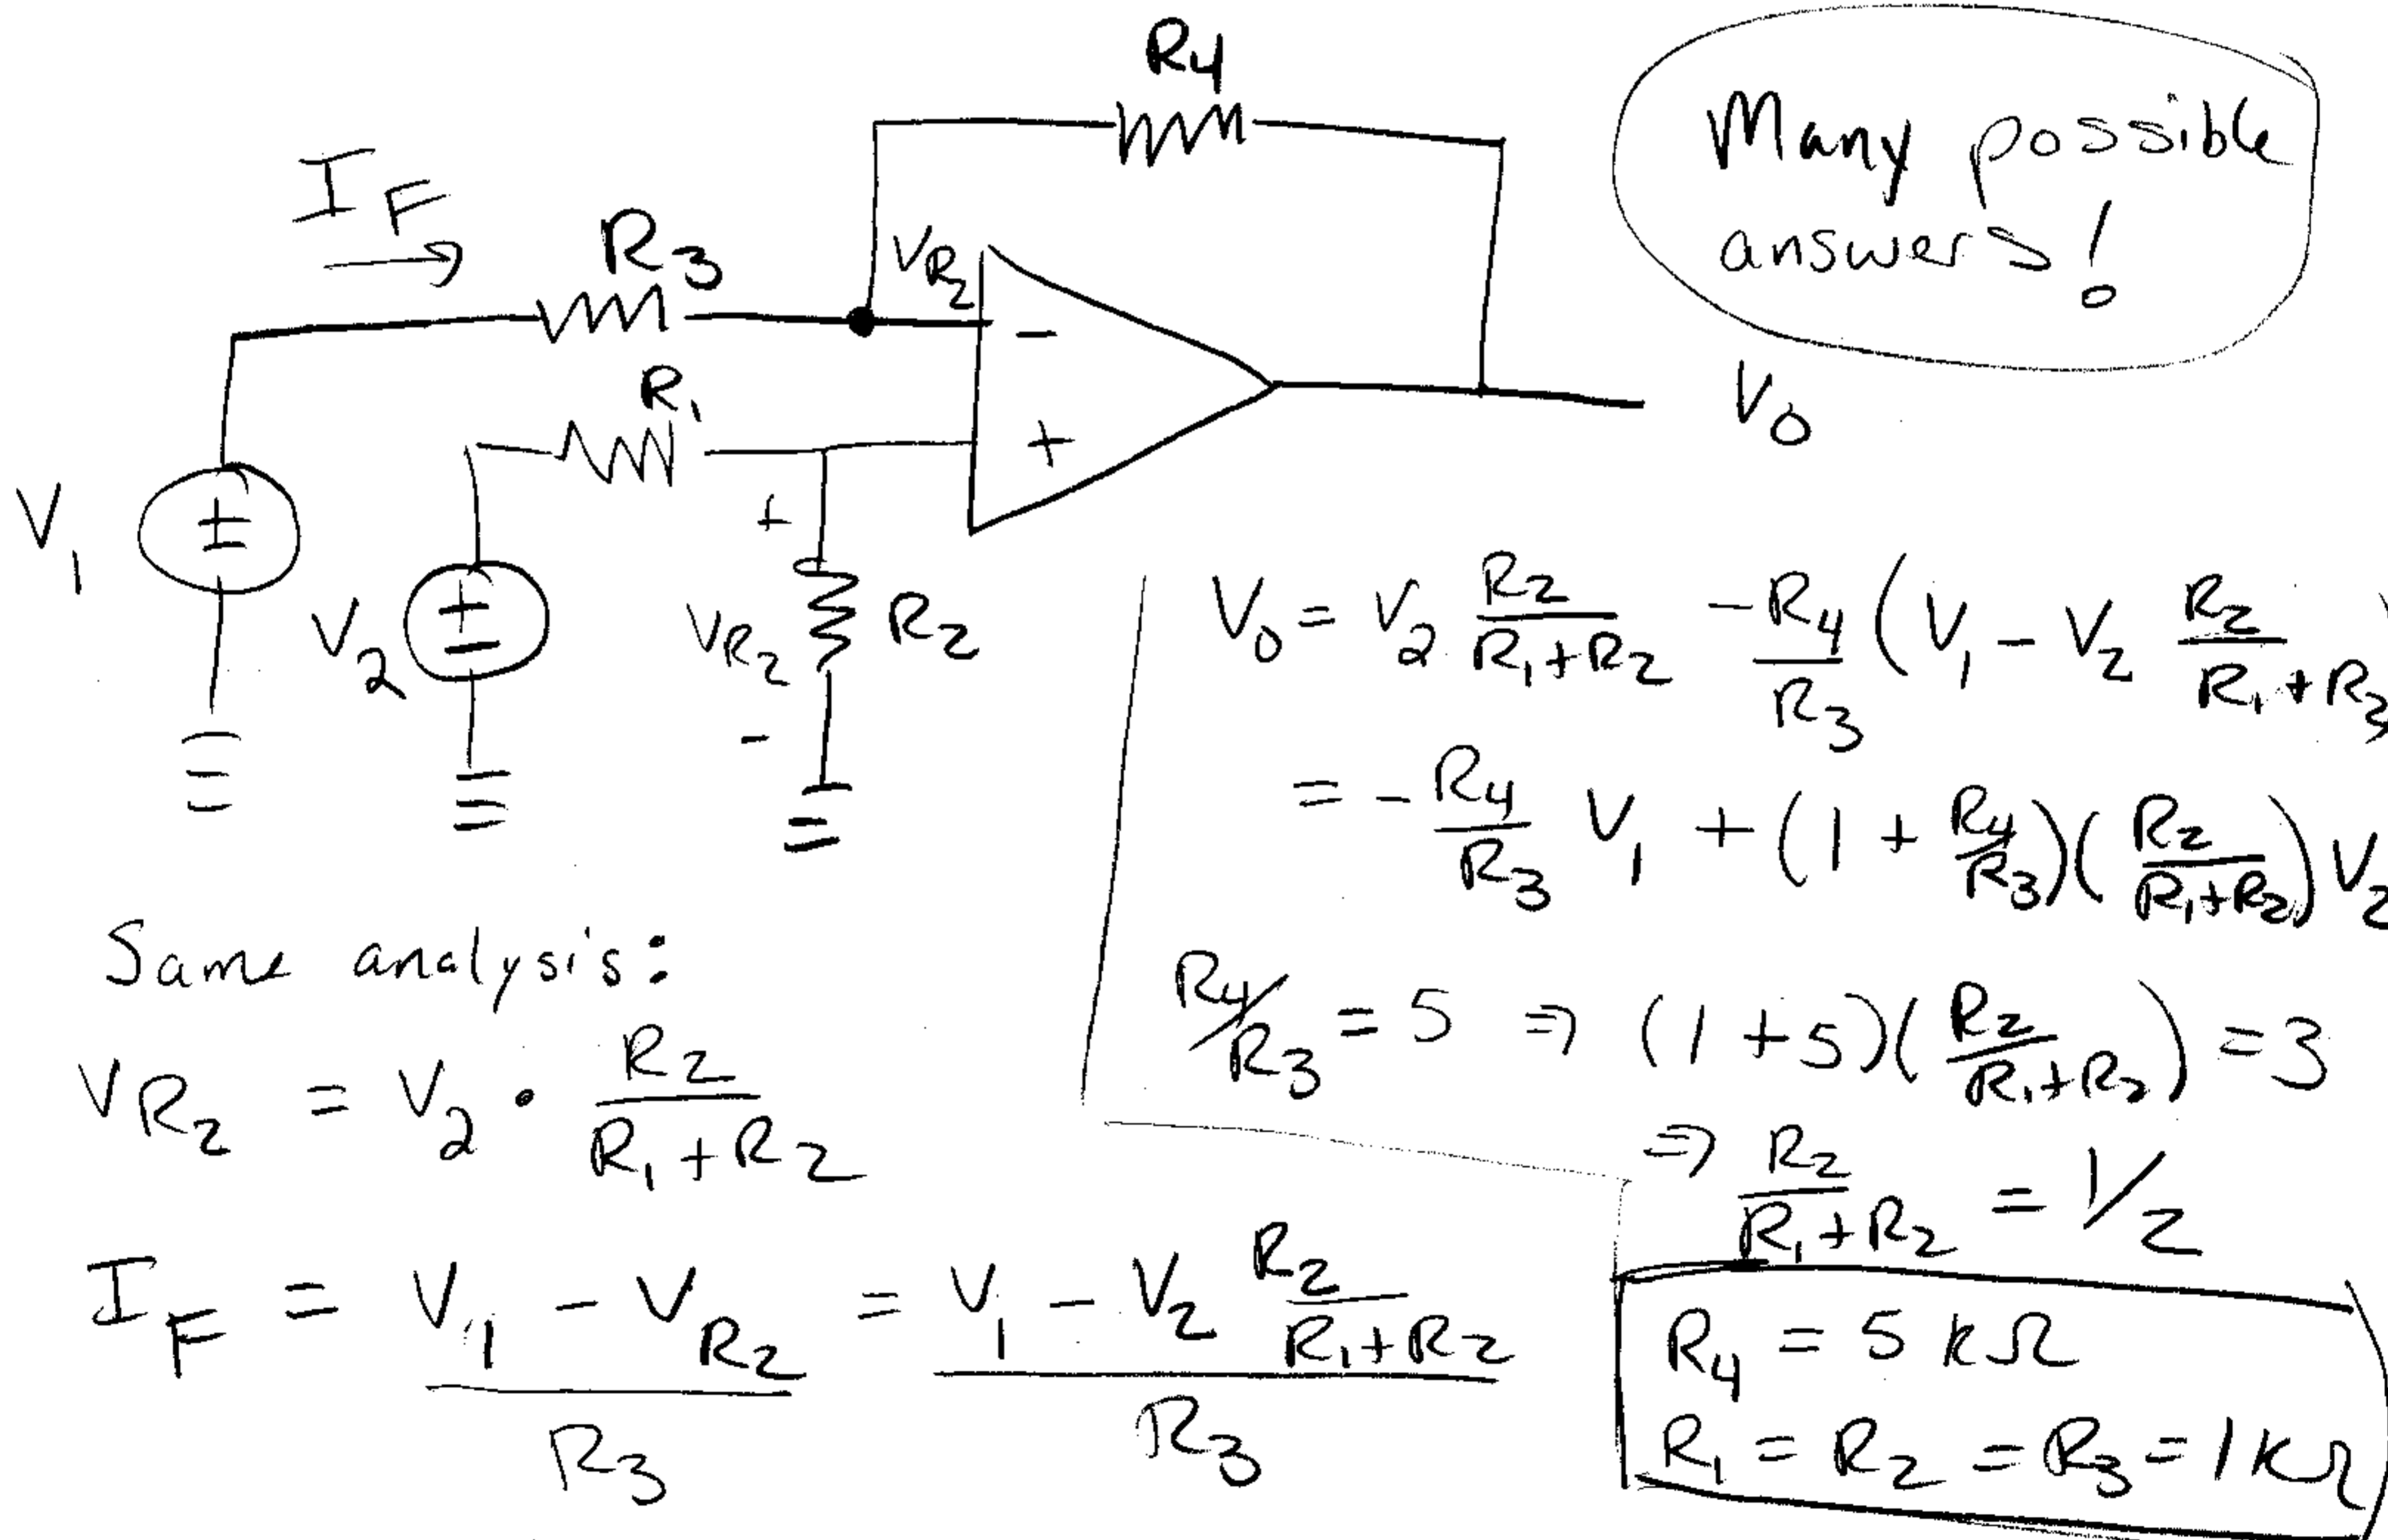 R4
Many possible
answers!
I_F
→
R3
V_R2
-
R1
+
V_0
V1
±
V2
±
+
V_R2
-
R2
V_0 = V_2 R2/(R1+R2) - R4/R3 (V_1 - V_2 R2/(R1+R2)
= - R4/R3 V_1 + (1 + R4/R3)(R2/(R1+R2)) V_2
R4/R3 = 5 ⇒ (1+5)(R2/(R1+R2)) = 3
⇒ R2/(R1+R2) = 1/2
R4 = 5 kΩ
R1 = R2 = R3 = 1 kΩ
Same analysis:
V_R2 = V_2 · R2/(R1+R2)
I_F = (V_1 - V_R2)/R3 = (V_1 - V_2 R2/(R1+R2))/R3